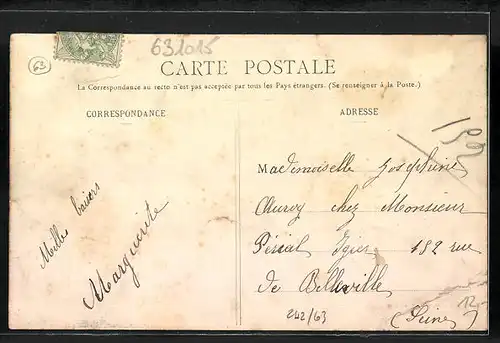 63
632015
CARTE POSTALE
La Correspondance au recto n'est pas acceptée par tous les Pays étrangers. (Se renseigner à la Poste.)
CORRESPONDANCE
ADRESSE
Mademoiselle Joséphine
chez Monsieur
182 rue
de Belleville
(Seine)
Mille baisers
Marguerite
242/63
12.-